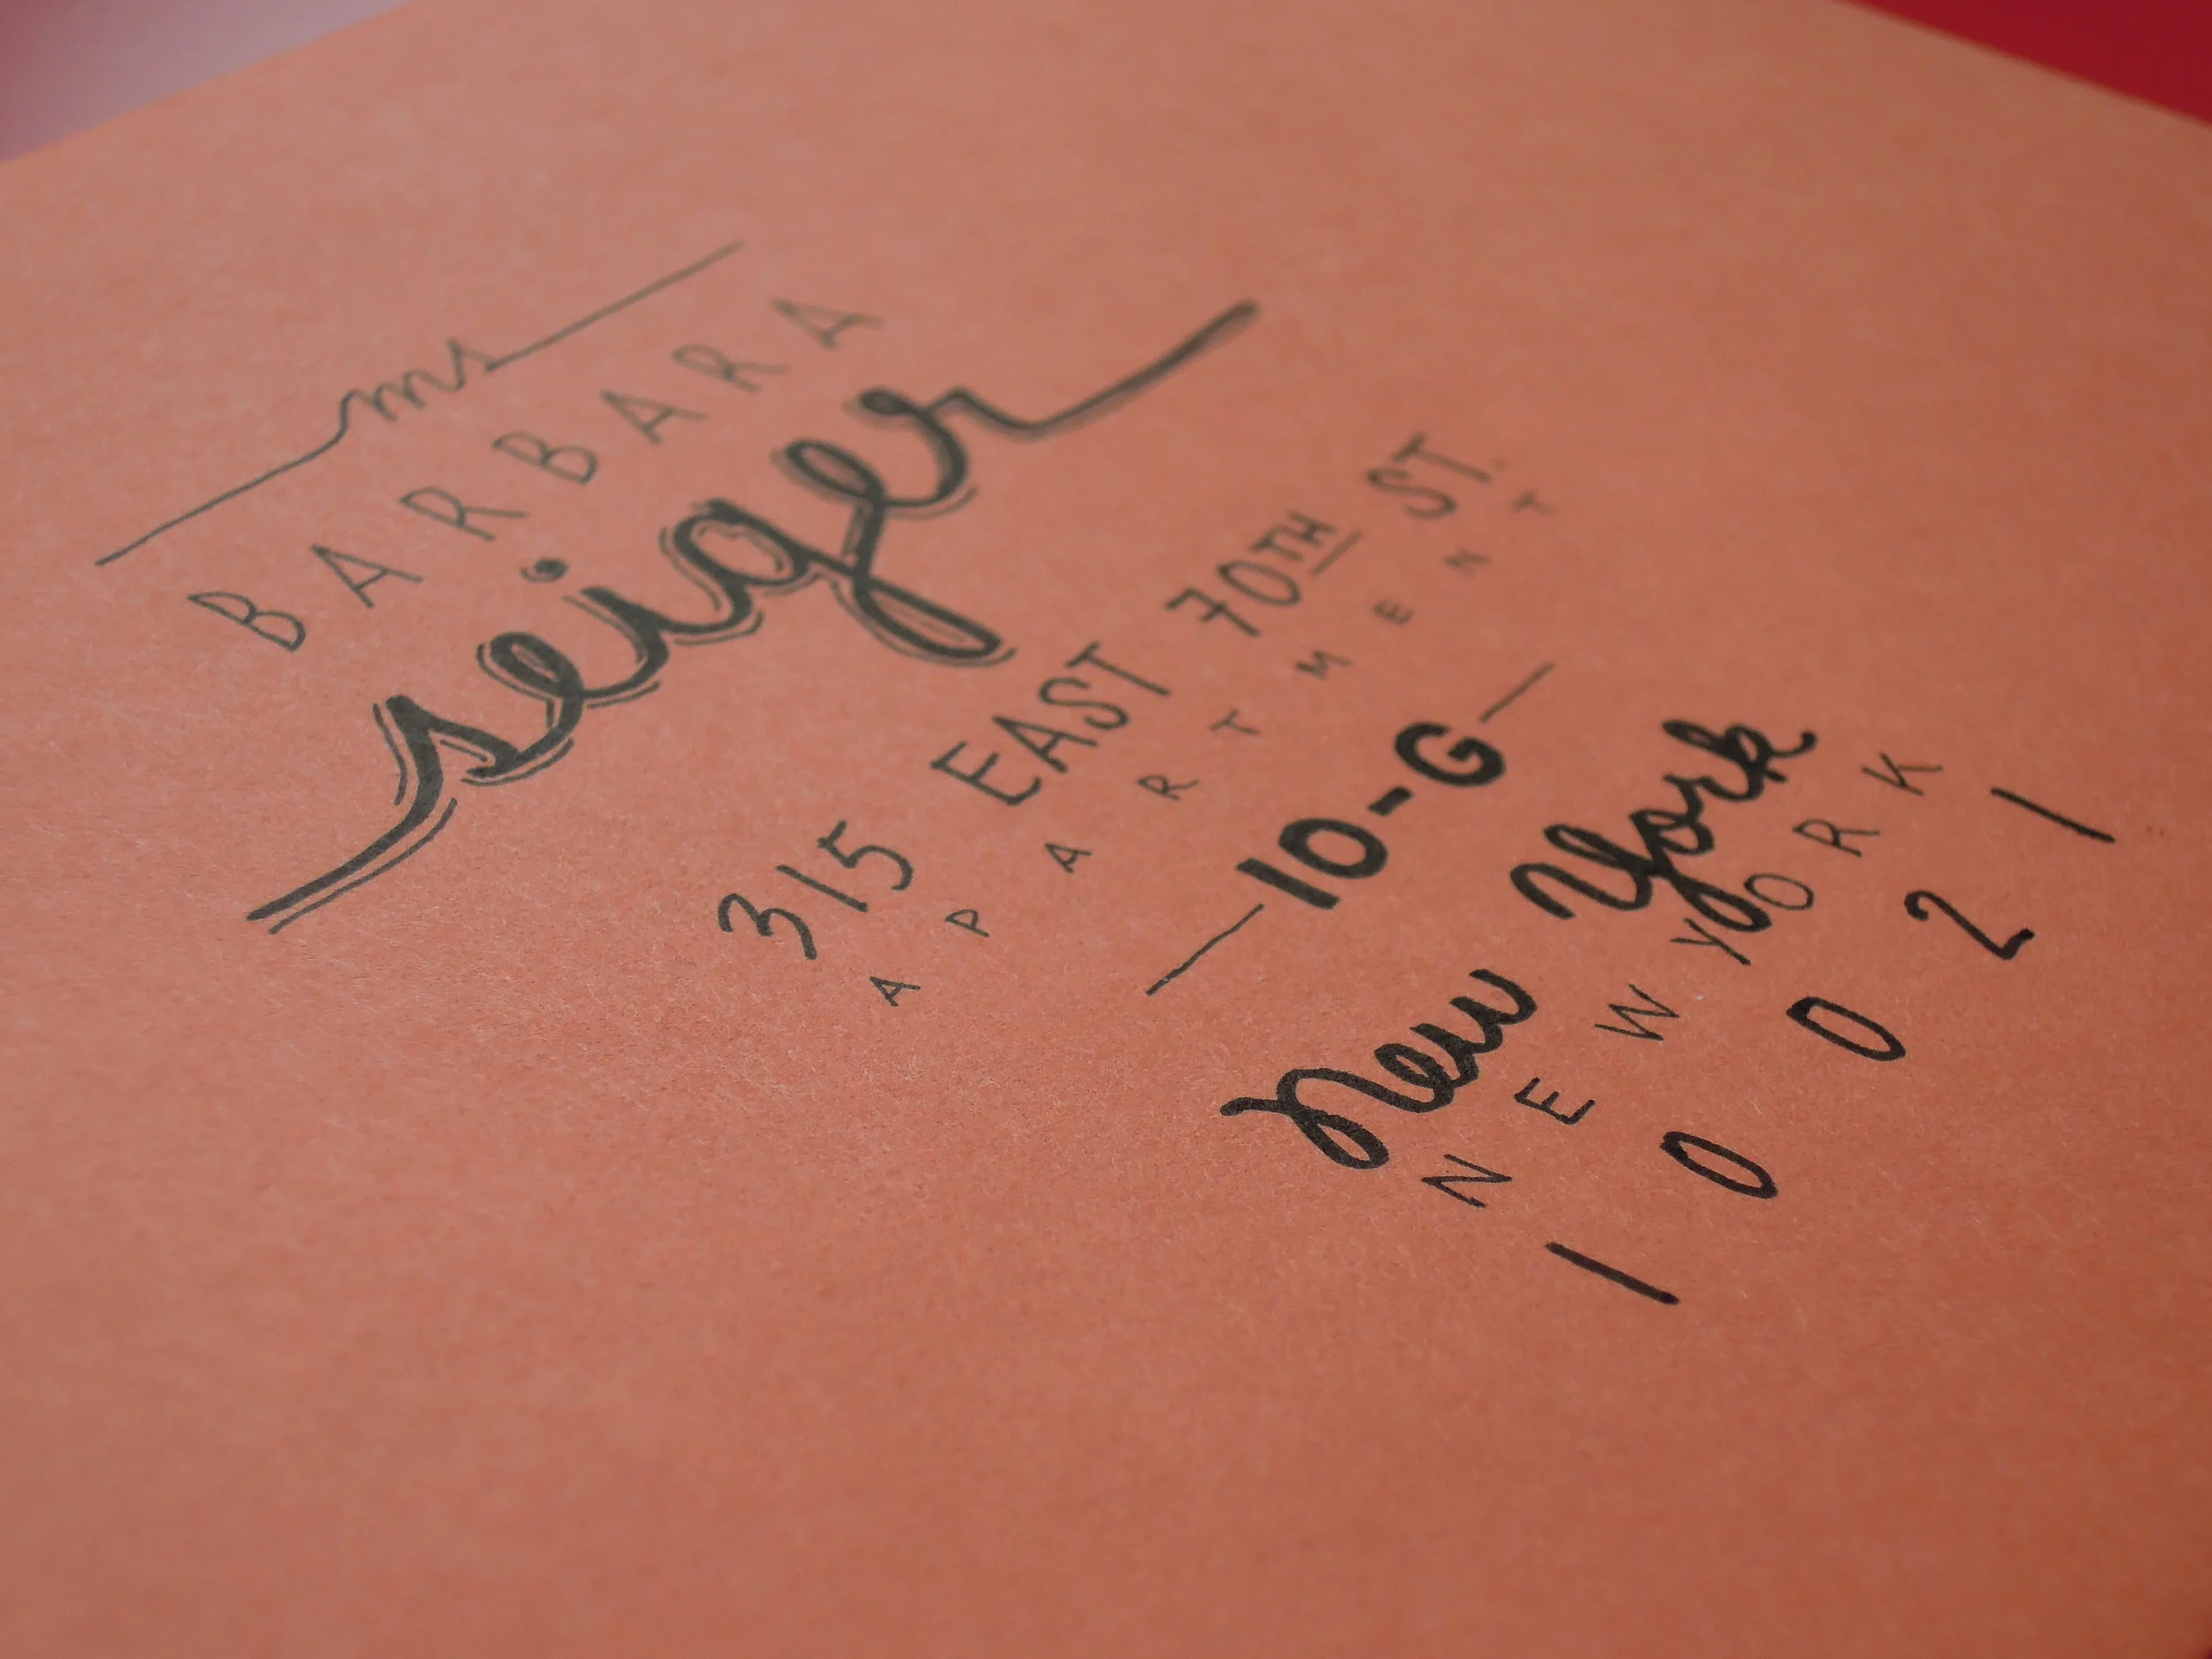 ms
BARBARA
seiger
315 EAST 70TH ST.
APARTMENT
10-G
New York
NEW YORK
10021